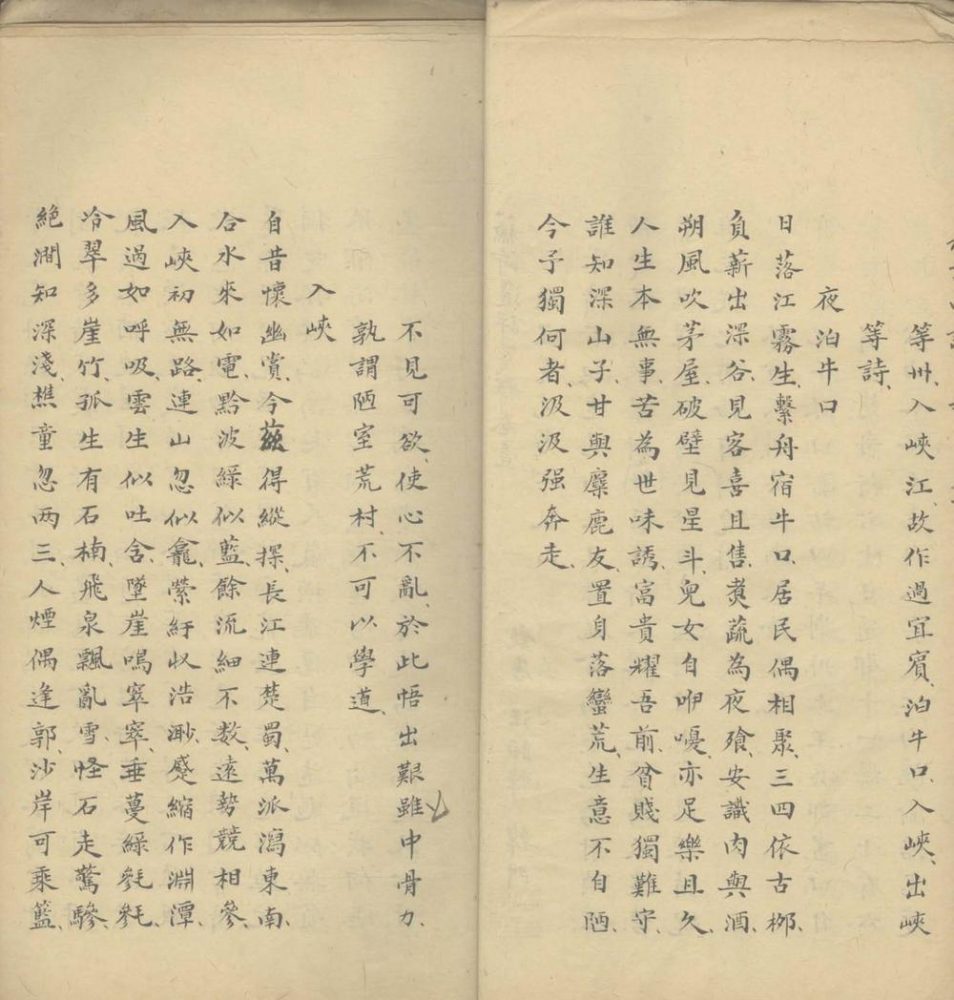 等卅、入峽江、故作過宜賓、泊牛口、入峽、出峽
等詩、
夜泊牛口
日落江霧生、繫舟宿牛口、居民偶相聚、三四依古栁、
負薪出深谷、見客喜且售、煑蔬為夜飱、安識肉與酒、
朔風吹茅屋、破壁見星斗、兒女自咿嚘、亦足樂且久、
人生本無事、苦為世味誘、富貴耀吾前、貧賤獨難守、
誰知深山子、甘與麋鹿友、置身落蠻荒、生意不自陋、
今予獨何者、汲汲强奔走、
不見可欲、使心不亂、於此悟出艱雖中骨力、
孰謂陋室荒村、不可以學道、
入峽
自昔懷幽賞、今茲得縱探、長江連楚蜀、萬派瀉東南、
合水來如電、黔波綠似藍、餘流細不數、遠勢競相參、
入峽初無路、連山忽似龕、縈紆収浩渺、蹙縮作淵潭、
風過如呼吸、雲生似吐含、墜崖鳴窣窣、垂蔓綠毿毿、
冷翠多崖竹、孤生有石楠、飛泉飄亂雪、怪石走驚驂、
絶澗知深淺、樵童忽两三、人煙偶逢郭、沙岸可乘籃、